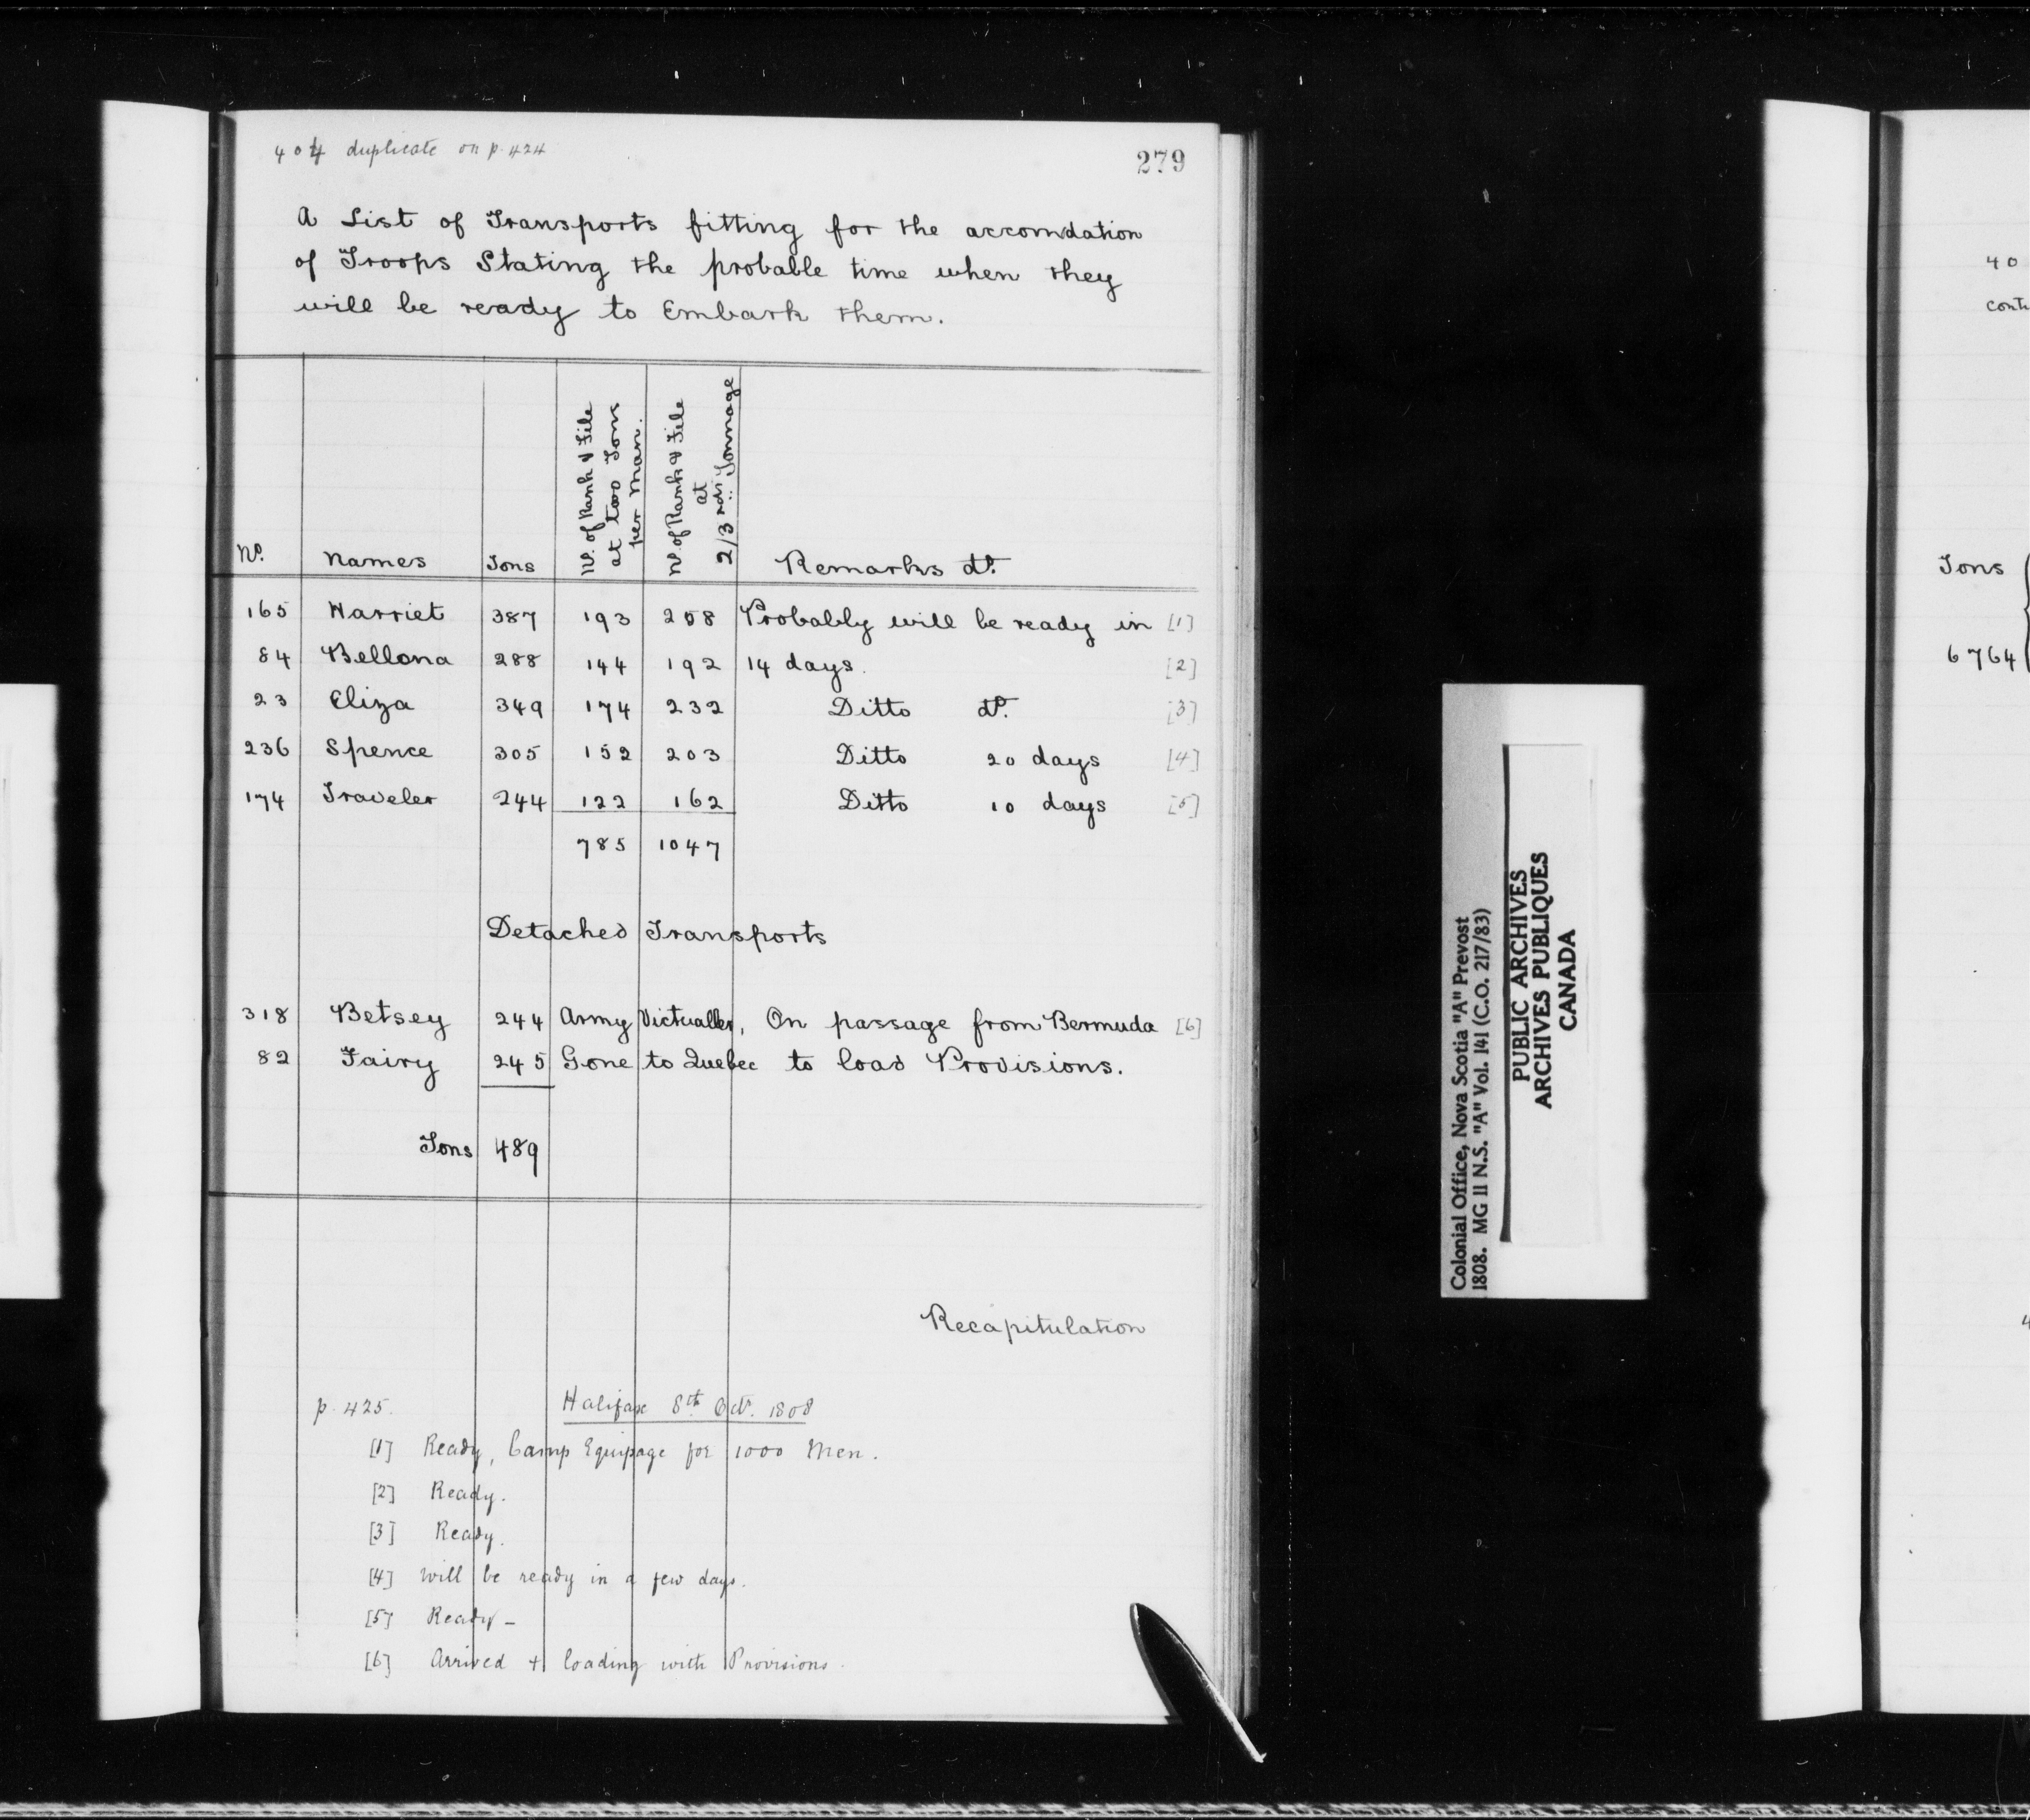 404 duplicate on p. 424
279
A List of Transports fitting for the accomdation
of Troops Stating the probable time when they
will be ready to Embark them.
No. Names Tons No. of Rank & File at two Tons per Man. No. of Rank & File at 2/3 rds Tonnage Remarks do.
165 Harriet 387 193 258 Probably will be ready in [1]
84 Bellona 288 144 192 14 days. [2]
23 Eliza 349 174 232 Ditto do. [3]
236 Spence 305 152 203 Ditto 20 days [4]
174 Traveler 244 122 162 Ditto 10 days [5]
785 1047
Detached Transports
318 Betsey 244 Army Victualler, On passage from Bermuda [6]
82 Fairy 245 Gone to Quebec to load Provisions.
Tons 489
Recapitulation
p. 425. Halifax 8th Octr. 1808
[1] Ready, Camp Equipage for 1000 Men.
[2] Ready.
[3] Ready.
[4] Will be ready in a few days.
[5] Ready –
[6] Arrived + loading with Provisions.
Colonial Office, Nova Scotia "A" Prevost
1808. MG 11 N.S. "A" Vol. 141 (C.O. 217/83)
PUBLIC ARCHIVES
ARCHIVES PUBLIQUES
CANADA
40
Tons
6764
4